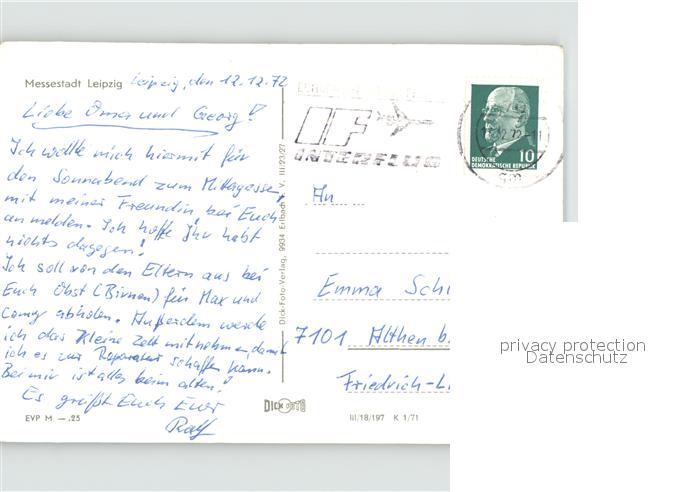 Messestadt Leipzig Leipzig, den 12.12.72
Liebe Oma und Georg!
Ich wollte mich hiermit für
den Sonnabend zum Mittagessen
mit meiner Freundin bei Euch
anmelden. Ich hoffe Ihr habt
nichts dagegen!
Ich soll von den Eltern aus bei
Euch Obst (Birnen) für Max und
abholen. Außerdem werde
ich das Kleine Zelt mitnehmen, damit
ich es zur Reparatur schaffen kann.
Bei mir ist alles beim alten!
Es grüßt Euch Euer
Ralf
EVP M — .25
Dick-Foto-Verlag, 9934 Erlbach V. III/23/27
DICK FOTO
IF
INTERFLUG
DEUTSCHE
DEMOKRATISCHE REPUBLIK
10
An
Emma Schi
7101 Althen b.
Friedrich-L
III/18/197 K 1/71
privacy protection
Datenschutz